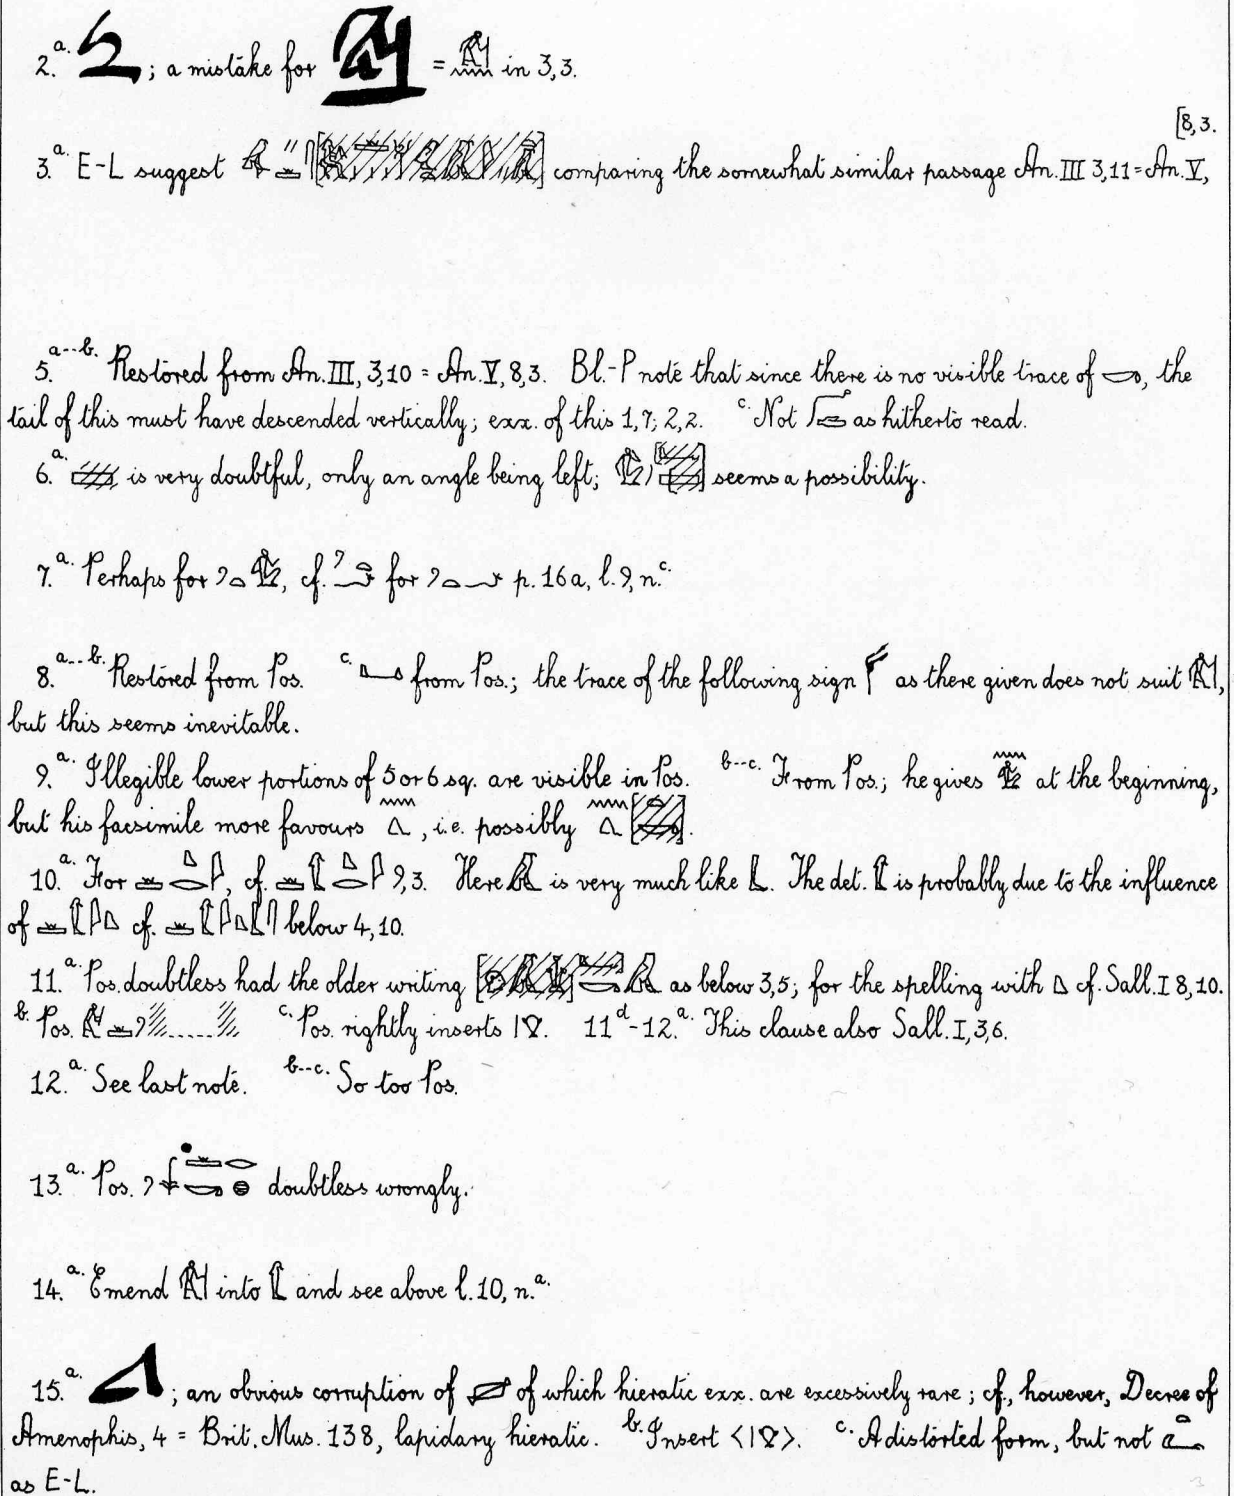 2.ᵃ· ; a mistake for = in 3,3.
[8,3.
3.ᵃ· E-L suggest [ ] comparing the somewhat similar passage An. III 3,11 = An. V,
5.ᵃ⁻⁻ᵇ· Restored from An. III, 3,10 = An. V, 8,3. Bl.-P note that since there is no visible trace of , the
tail of this must have descended vertically; exx. of this 1,7; 2,2. ᶜ· Not as hitherto read.
6.ᵃ· is very doubtful, only an angle being left; [ ] seems a possibility.
7.ᵃ· Perhaps for , cf. for p. 16a, l. 9, n.ᶜ·
8.ᵃ⁻⁻ᵇ· Restored from Pos. ᶜ· from Pos.; the trace of the following sign as there given does not suit ,
but this seems inevitable.
9.ᵃ· Illegible lower portions of 5 or 6 sq. are visible in Pos. ᵇ⁻⁻ᶜ· From Pos.; he gives at the beginning,
but his facsimile more favours , i.e. possibly [ ].
10.ᵃ· For , cf. 9,3. Here is very much like . The det. is probably due to the influence
of cf. below 4,10.
11.ᵃ· Pos. doubtless had the older writing [ ] as below 3,5; for the spelling with cf. Sall. I 8,10.
ᵇ· Pos. ..... ᶜ· Pos. rightly inserts . 11ᵈ-12.ᵃ· This clause also Sall. I, 3,6.
12.ᵃ· See last note. ᵇ⁻⁻ᶜ· So too Pos.
13.ᵃ· Pos. doubtless wrongly.
14.ᵃ· Emend into and see above l. 10, n.ᵃ·
15.ᵃ· ; an obvious corruption of of which hieratic exx. are excessively rare; cf., however, Decree of
Amenophis, 4 = Brit. Mus. 138, lapidary hieratic. ᵇ· Insert < >. ᶜ· A distorted form, but not
as E-L.